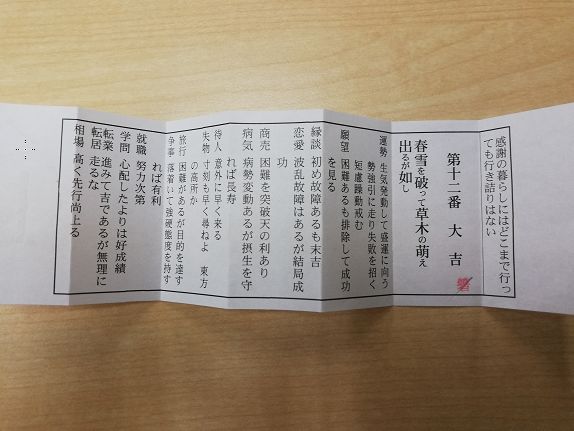 感謝の暮らしにはどこまで行っ
ても行き詰りはない
第十二番 大吉
春雪を破って草木の萌え
出るが如し
運勢 生気発動して盛運に向う
勢強引に走り失敗を招く
短慮躁動戒む
願望 困難あるも排除して成功
を見る
縁談 初め故障あるも末吉
恋愛 波乱故障はあるが結局成
功
商売 困難を突破天の利あり
病気 病勢変動あるが摂生を守
れば長寿
待人 意外に早く来る
失物 寸刻も早く尋ねよ 東方
の高所か
旅行 困難があるが目的を達す
争事 落着いて強硬態度を持す
れば有利
就職 努力次第
学問 心配したよりは好成績
転業 進みて吉であるが無理に
転居 走るな
相場 高く先行尚上る